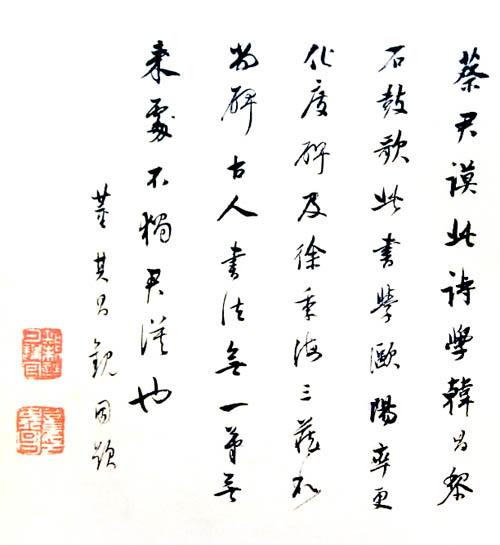 蔡君謨此詩學韓昌黎
石鼓歌此書學歐陽率更
化度碑及徐季海三藏和
尚碑古人書法無一筆無
來處不獨君謨也
董其昌觀因題